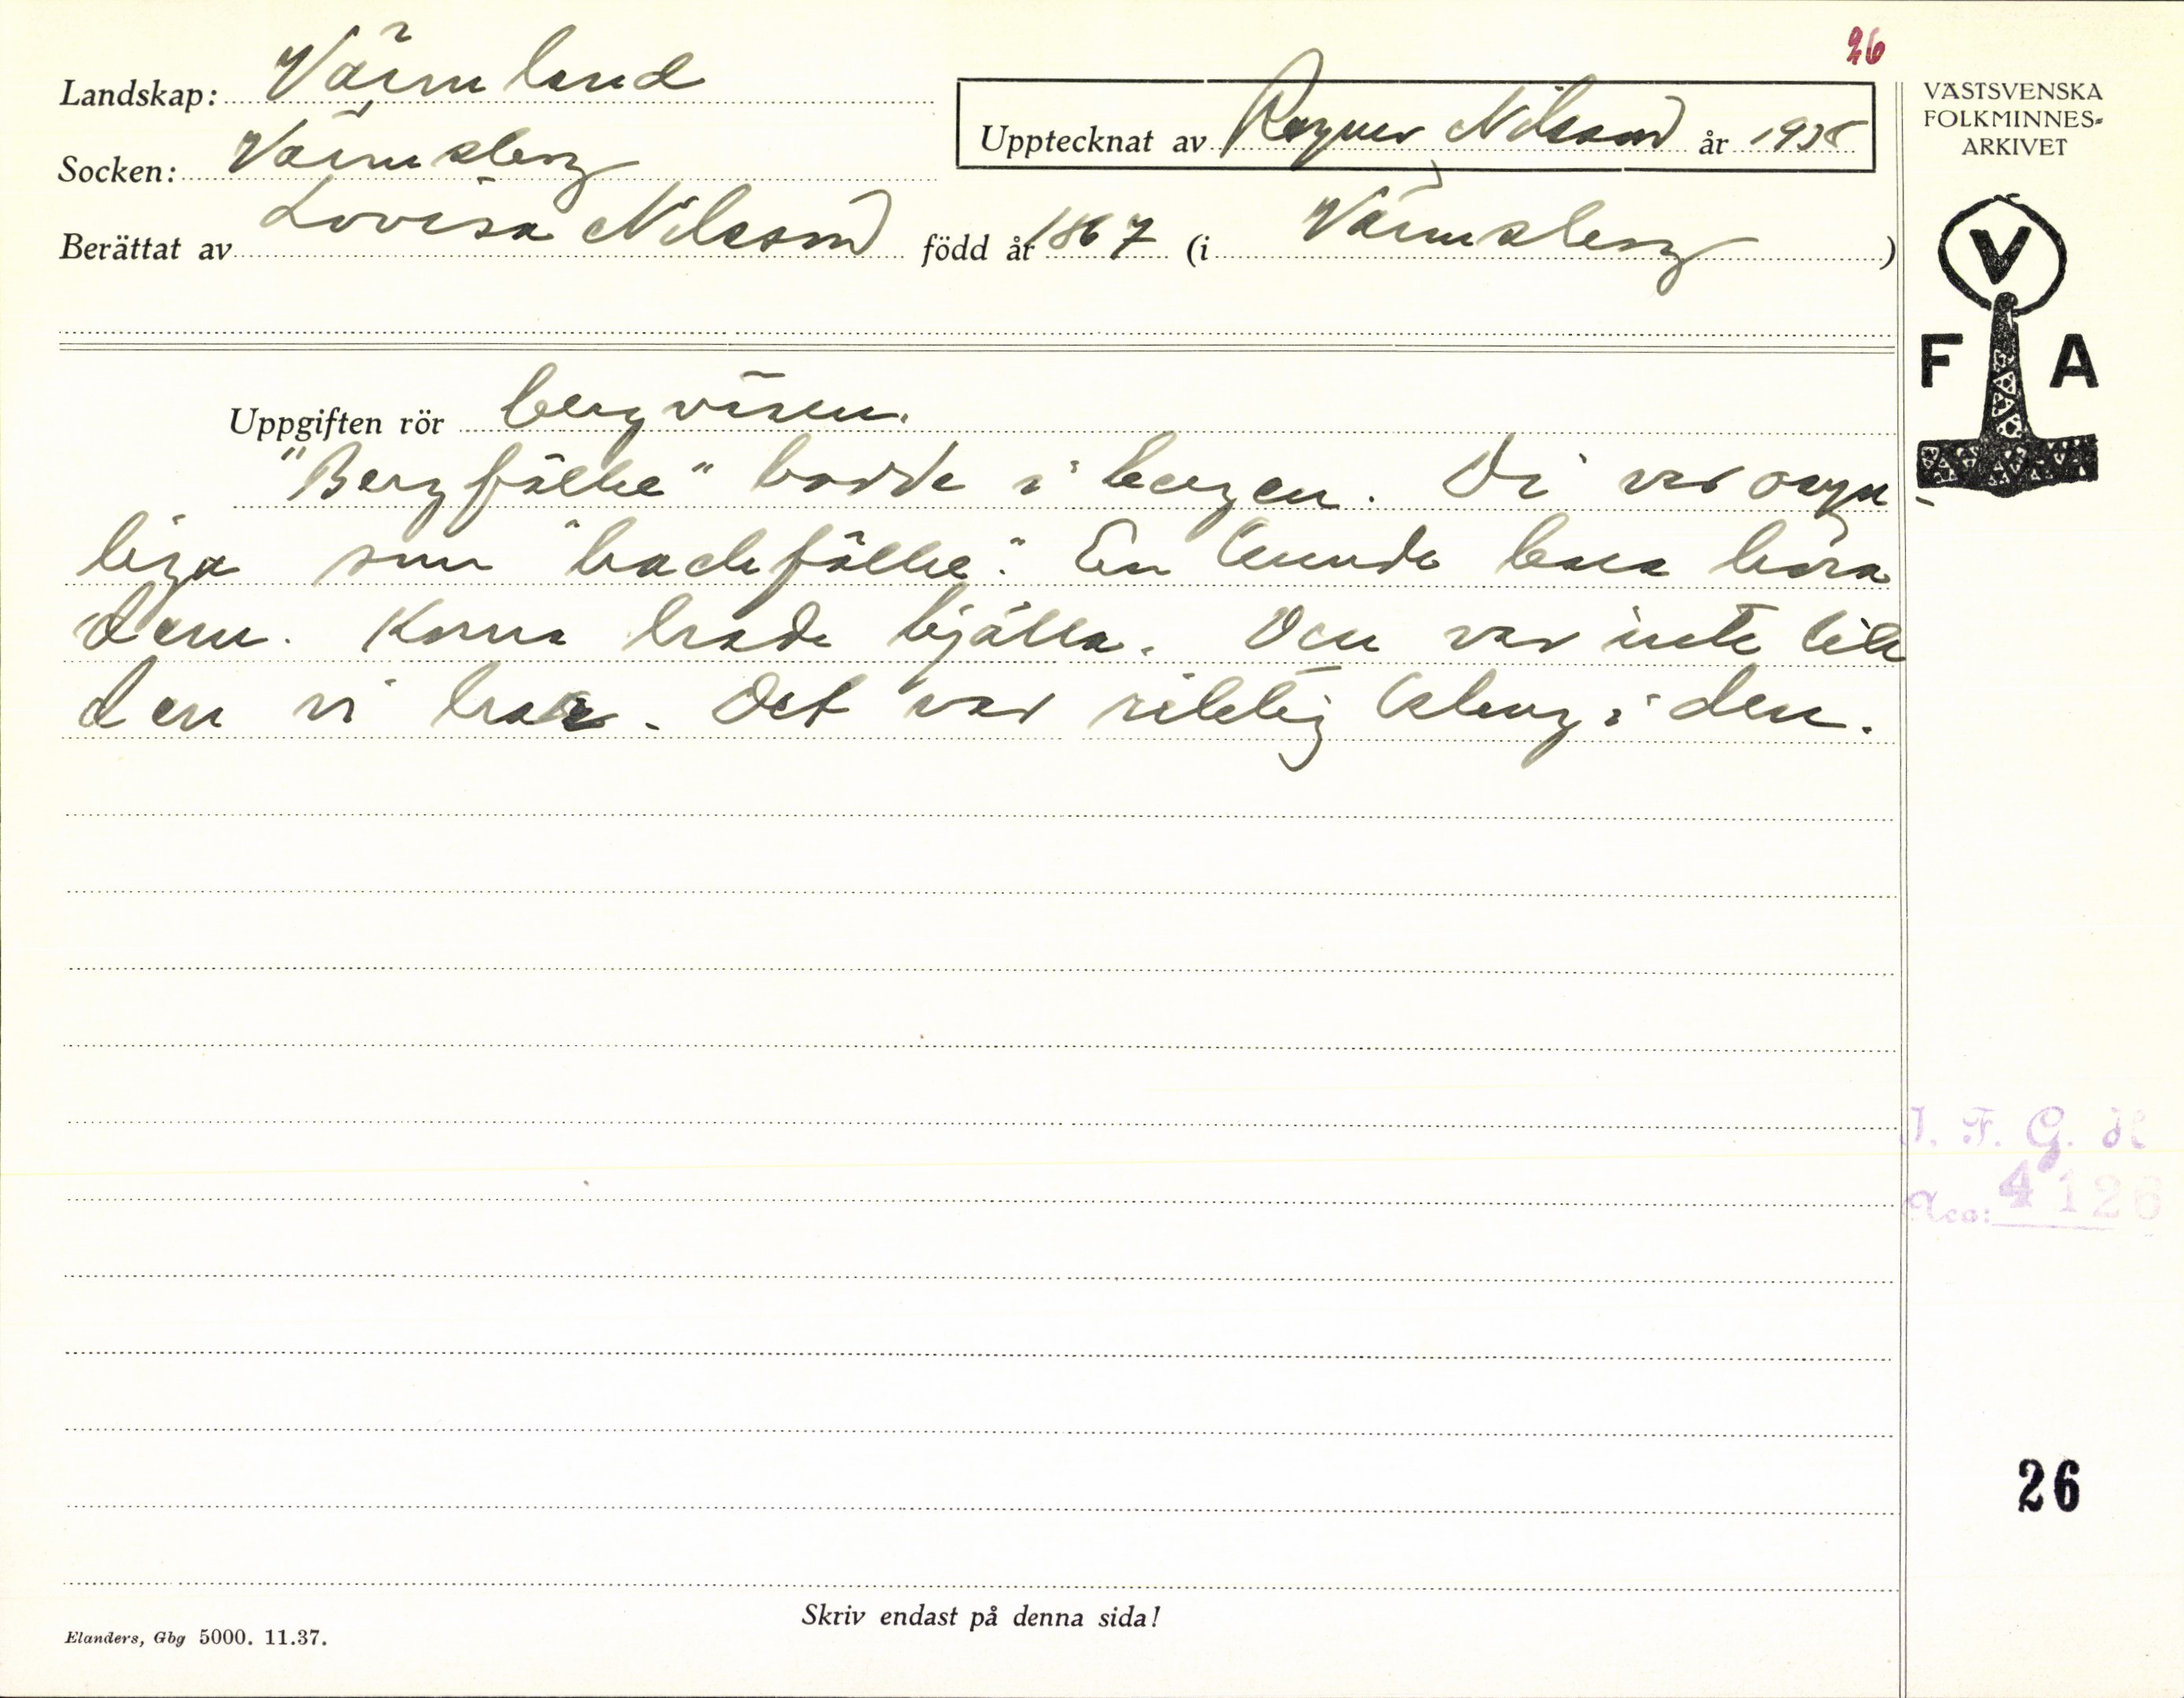 26
Landskap: Värmland
Upptecknat av Ragnar Nilsson år 1938
VÄSTSVENSKA
FOLKMINNES-
ARKIVET
Socken: Värmskog
Berättat av Lovisa Nilsson född år 1867 (i Värmskog)
V
F A
Uppgiften rör bergväsen.
"Bergfôlke" bodde i bergen. Di var osyn-
liga som "backfôlke". En kunde bara höra
dem. Korna hade bjälla. Den var inte lik
den vi har. Det var riktig klang i den.
I. F. G. H
Acc: 4126
26
Skriv endast på denna sida!
Elanders, Gbg 5000. 11.37.